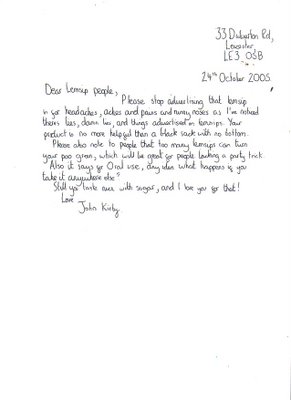 33 Dulverton Rd,
Leicester,
LE3 0SB
24th October 2005
Dear Lemsip people,
Please stop advertising that lemsip
is for headaches, aches and pains and runny noses as I've noticed
theirs lies, damn lies, and things advertised on lemsips. Your
product is no more helpful than a black sack with no bottom.
Please also note to people that too many lemsips can turn
your poo green, which will be great for people wanting a party trick.
Also it says for Oral use, any idea what happens if you
take it anywhere else?
Still you taste nice with sugar, and I love you for that!
Love
John Kirby